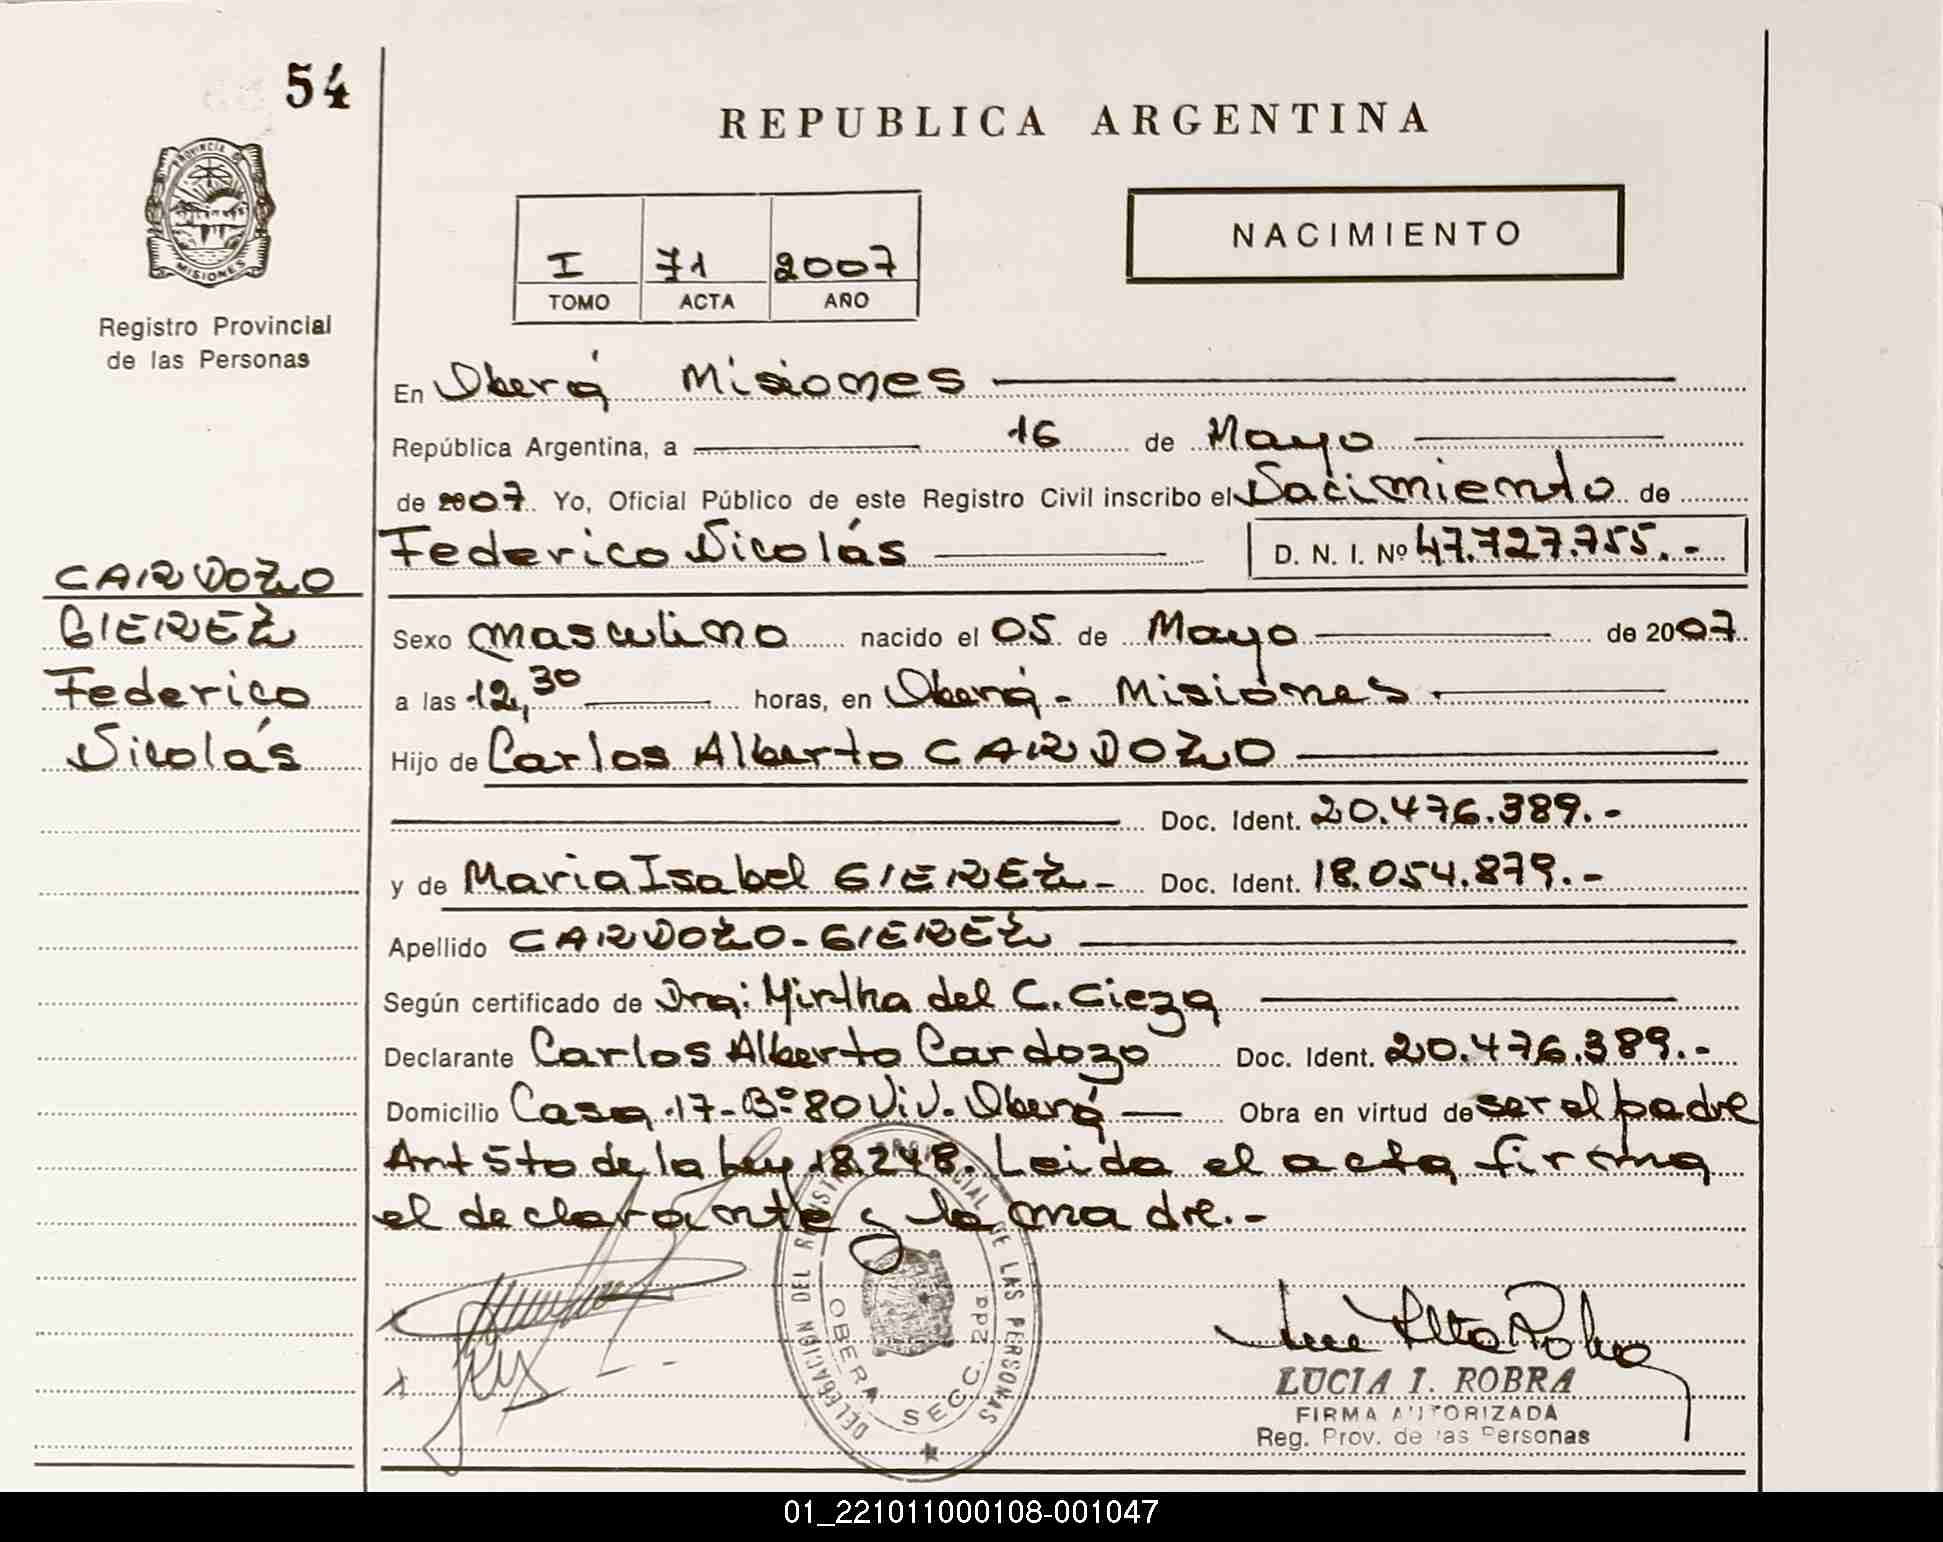 54
PROVINCIA DE
MISIONES
Registro Provincial
de las Personas
CARDOZO
GIEREZ
Federico
Nicolás
REPUBLICA ARGENTINA
I 71 2007
TOMO ACTA AÑO
NACIMIENTO
En Oberá Misiones
República Argentina, a 16 de Mayo
de 2007. Yo, Oficial Público de este Registro Civil inscribo el Nacimiento de
Federico Nicolás D. N. I. Nº 47.727.755.-
Sexo masculino nacido el 05 de Mayo de 2007.
a las 12,30 horas, en Oberá - Misiones
Hijo de Carlos Alberto CARDOZO
Doc. Ident. 20.476.389.-
y de Maria Isabel GIEREZ - Doc. Ident. 18.054.879.-
Apellido CARDOZO - GIEREZ
Según certificado de Dra: Mirtha del C. Cieza
Declarante Carlos Alberto Cardozo Doc. Ident. 20.476.389.-
Domicilio Casa 17 - Bº 80 Viv. Oberá Obra en virtud de ser el padre
Art 5to de la Ley 18.248. Leida el acta firma
el declarante y la madre.-
DELEGACIÓN DEL REGISTRO PROVINCIAL DE LAS PERSONAS
OBERA SECC. 2da
LUCIA I. ROBRA
FIRMA AUTORIZADA
Reg. Prov. de las Personas
01_221011000108-001047